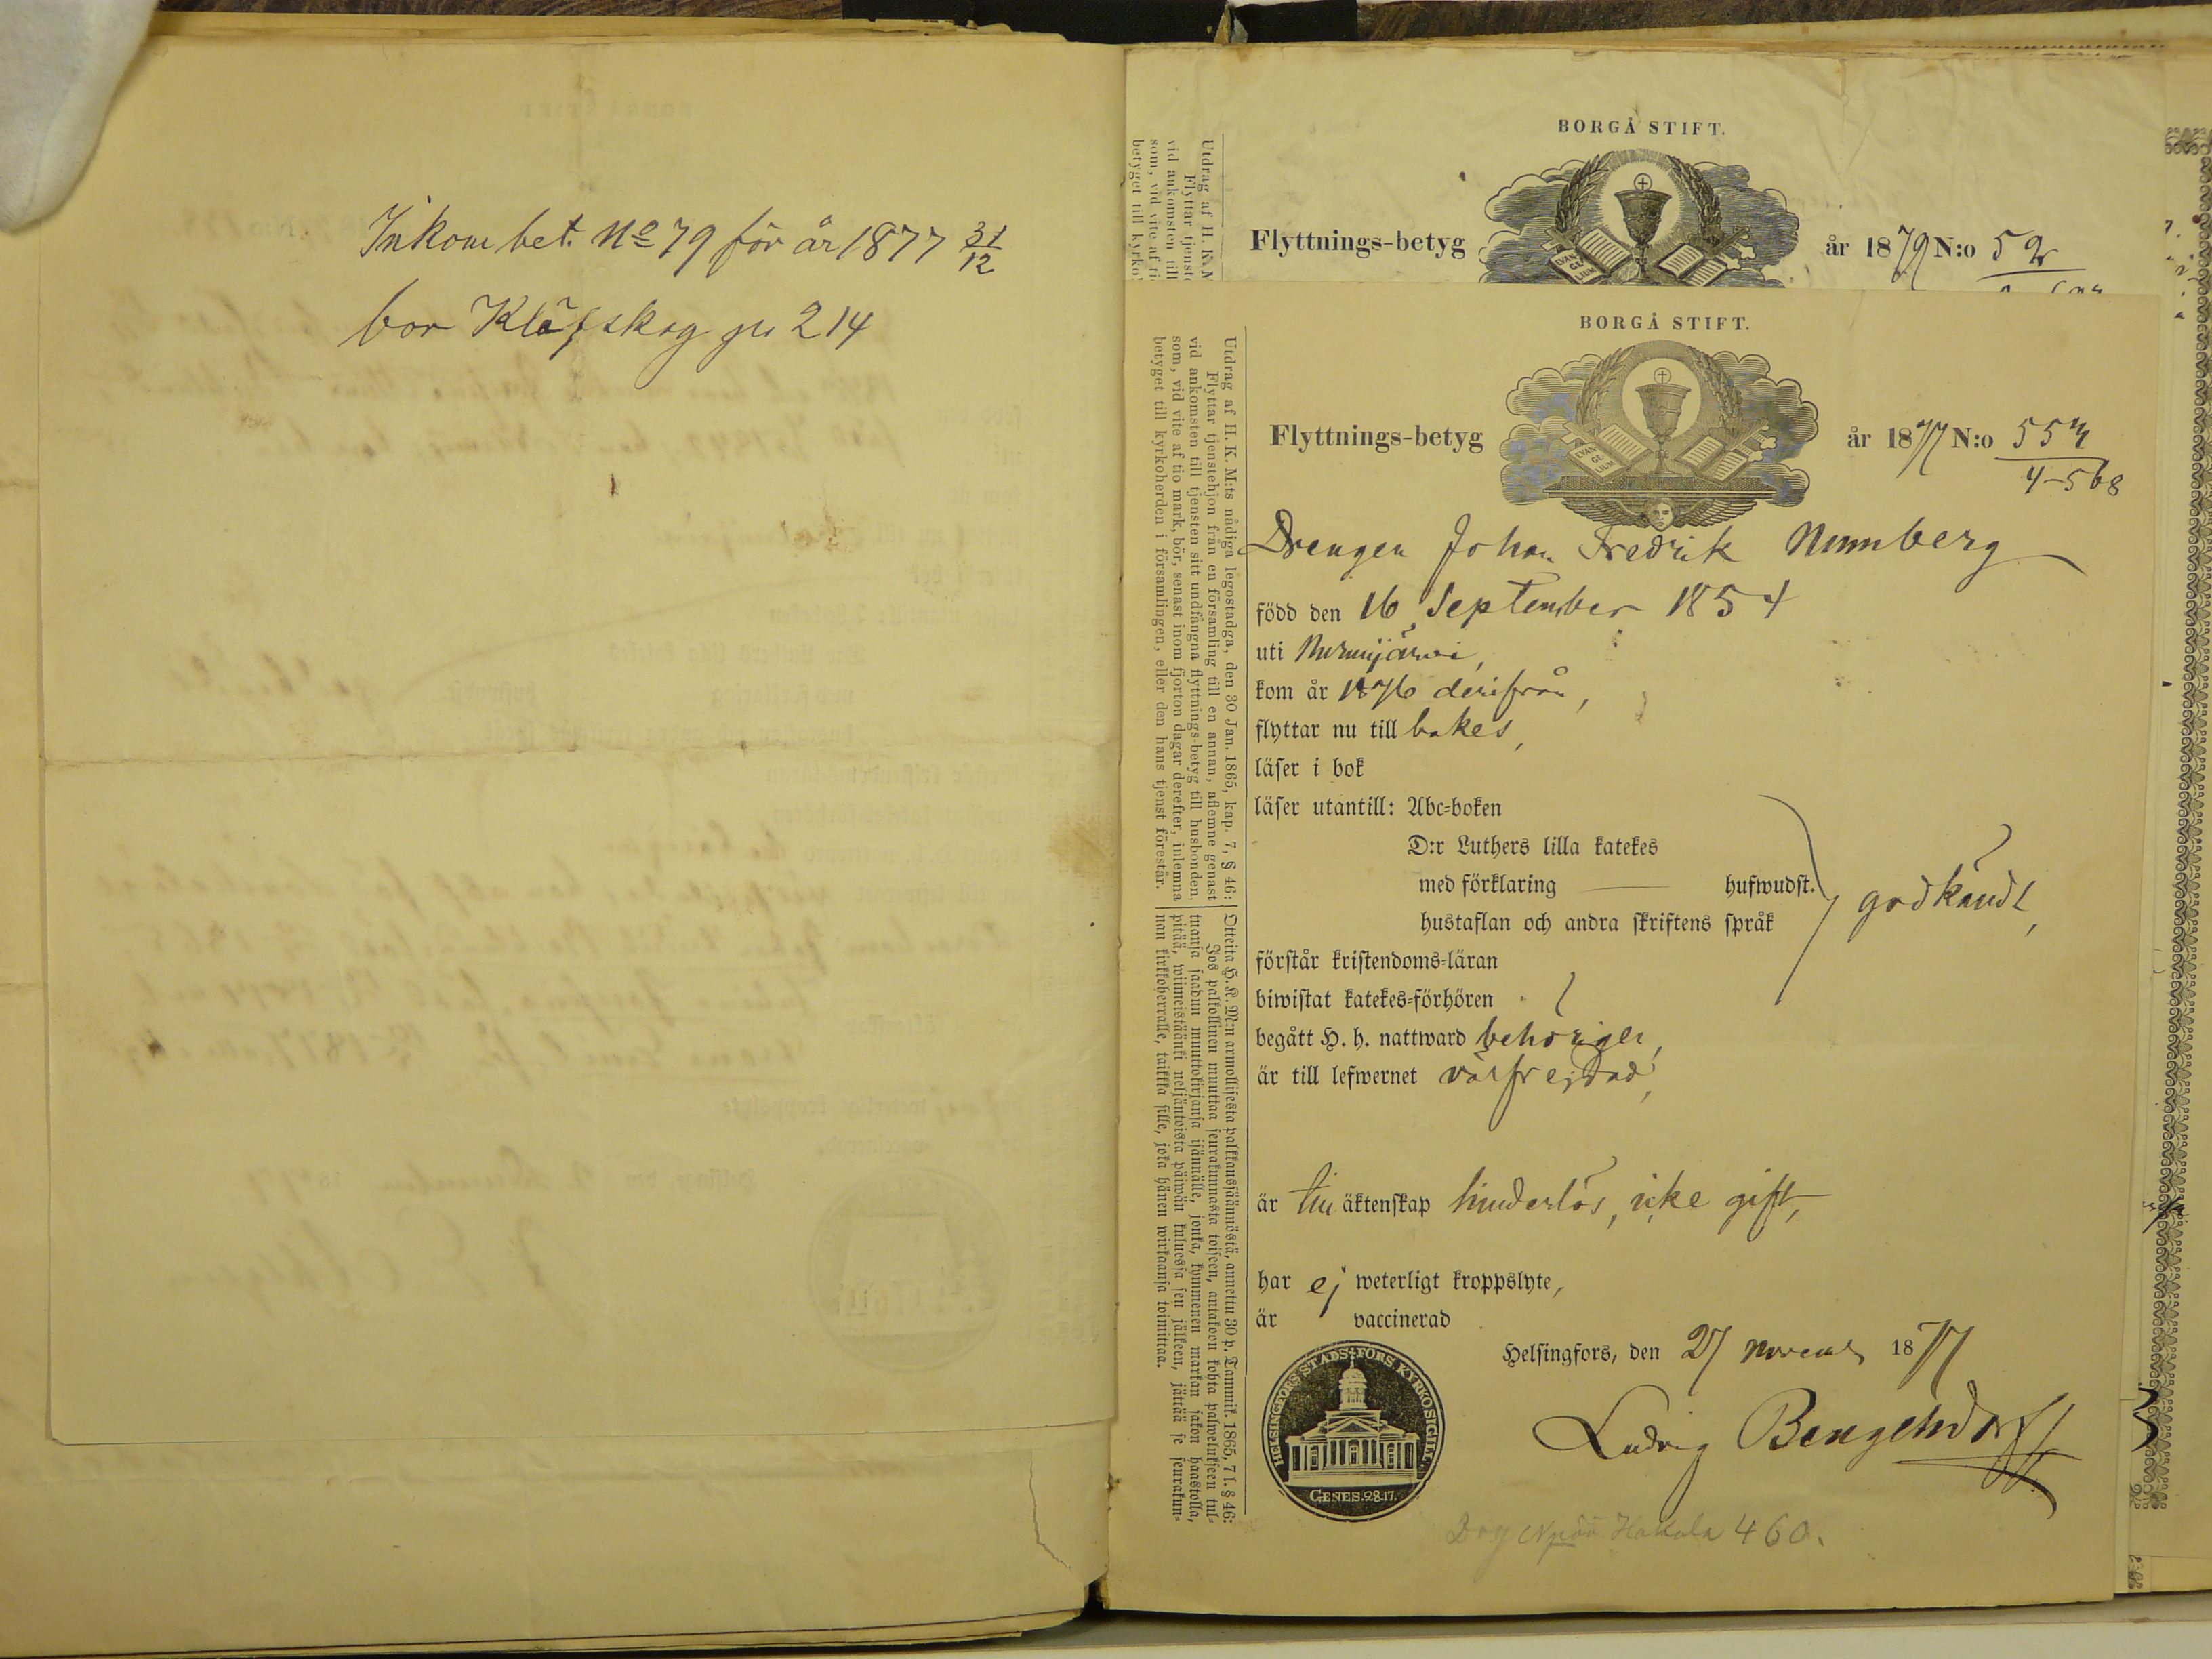 Inkom bet. No 79 för år 1877 31/12
bor Kläfskog
214
BORGÅ STIFT.
Flyttnings-betyg
år 1879 N:o 52
Utdrag af H. K. M
Flyttar tjenste
vid ankomsten till
som, vid vite af ti
betyget till kyrko
BORGÅ STIFT.
Flyttnings-betyg
år 1877 N:o 554
4-568
EVAN GE LIUM
Drengen Johan Fredrik Nummberg
född den 16 September 1854
uti Nurmijärwi,
kom år 1876 derifrån,
flyttar nu till bakes,
läser i bok
läser utantill: Abc-boken
D:r Luthers lilla katekes
med förklaring hufwudst.
hustaflan och andra skriftens språk
godkändt,
förstår kristendoms-läran
biwistat katekes-förhören
begått H. h. nattward behörigen,
är till lefwernet välfrejdad,
är till äktenskap hinderlös, icke gift,
har ej weterligt kroppslyte,
är vaccinerad
Helsingfors, den 27 November 1877
Ludvig Bengelsdorff
HELSINGFORS STADS FORS KYRKOSIGILL.
GENES. 28.17.
Hakala 460.
Utdrag af H. K. M:ts nådiga legostadga, den 30 Jan. 1865, kap. 7, § 46:
Flyttar tjenstehjon från en församling till en annan, aflemne genast
vid ankomsten till tjensten sitt undfångna flyttnings-betyg till husbonden,
som, vid vite af tio mark, bör, senast inom fjorton dagar derefter, inlemna
betyget till kyrkoherden i församlingen, eller den hans tjenst förestår.
Otteita H. K. M:n armollisesta palkkaussäännöstä, annettu 30 p. Tammik. 1865, 7 l. § 46:
Jos palkollinen muuttaa seurakunnasta toiseen, antakoon kohta palwelukseen tul-
tuansa saadun muuttokirjansa isännälle, jonka, kymmenen markan sakon haastolla,
pitää, wiimeistäänki neljäntoista päiwän kuluessa sen jälkeen, jättää se seurakun-
nan kirkkoherralle, taikka sille, joka hänen wirkaansa toimittaa.